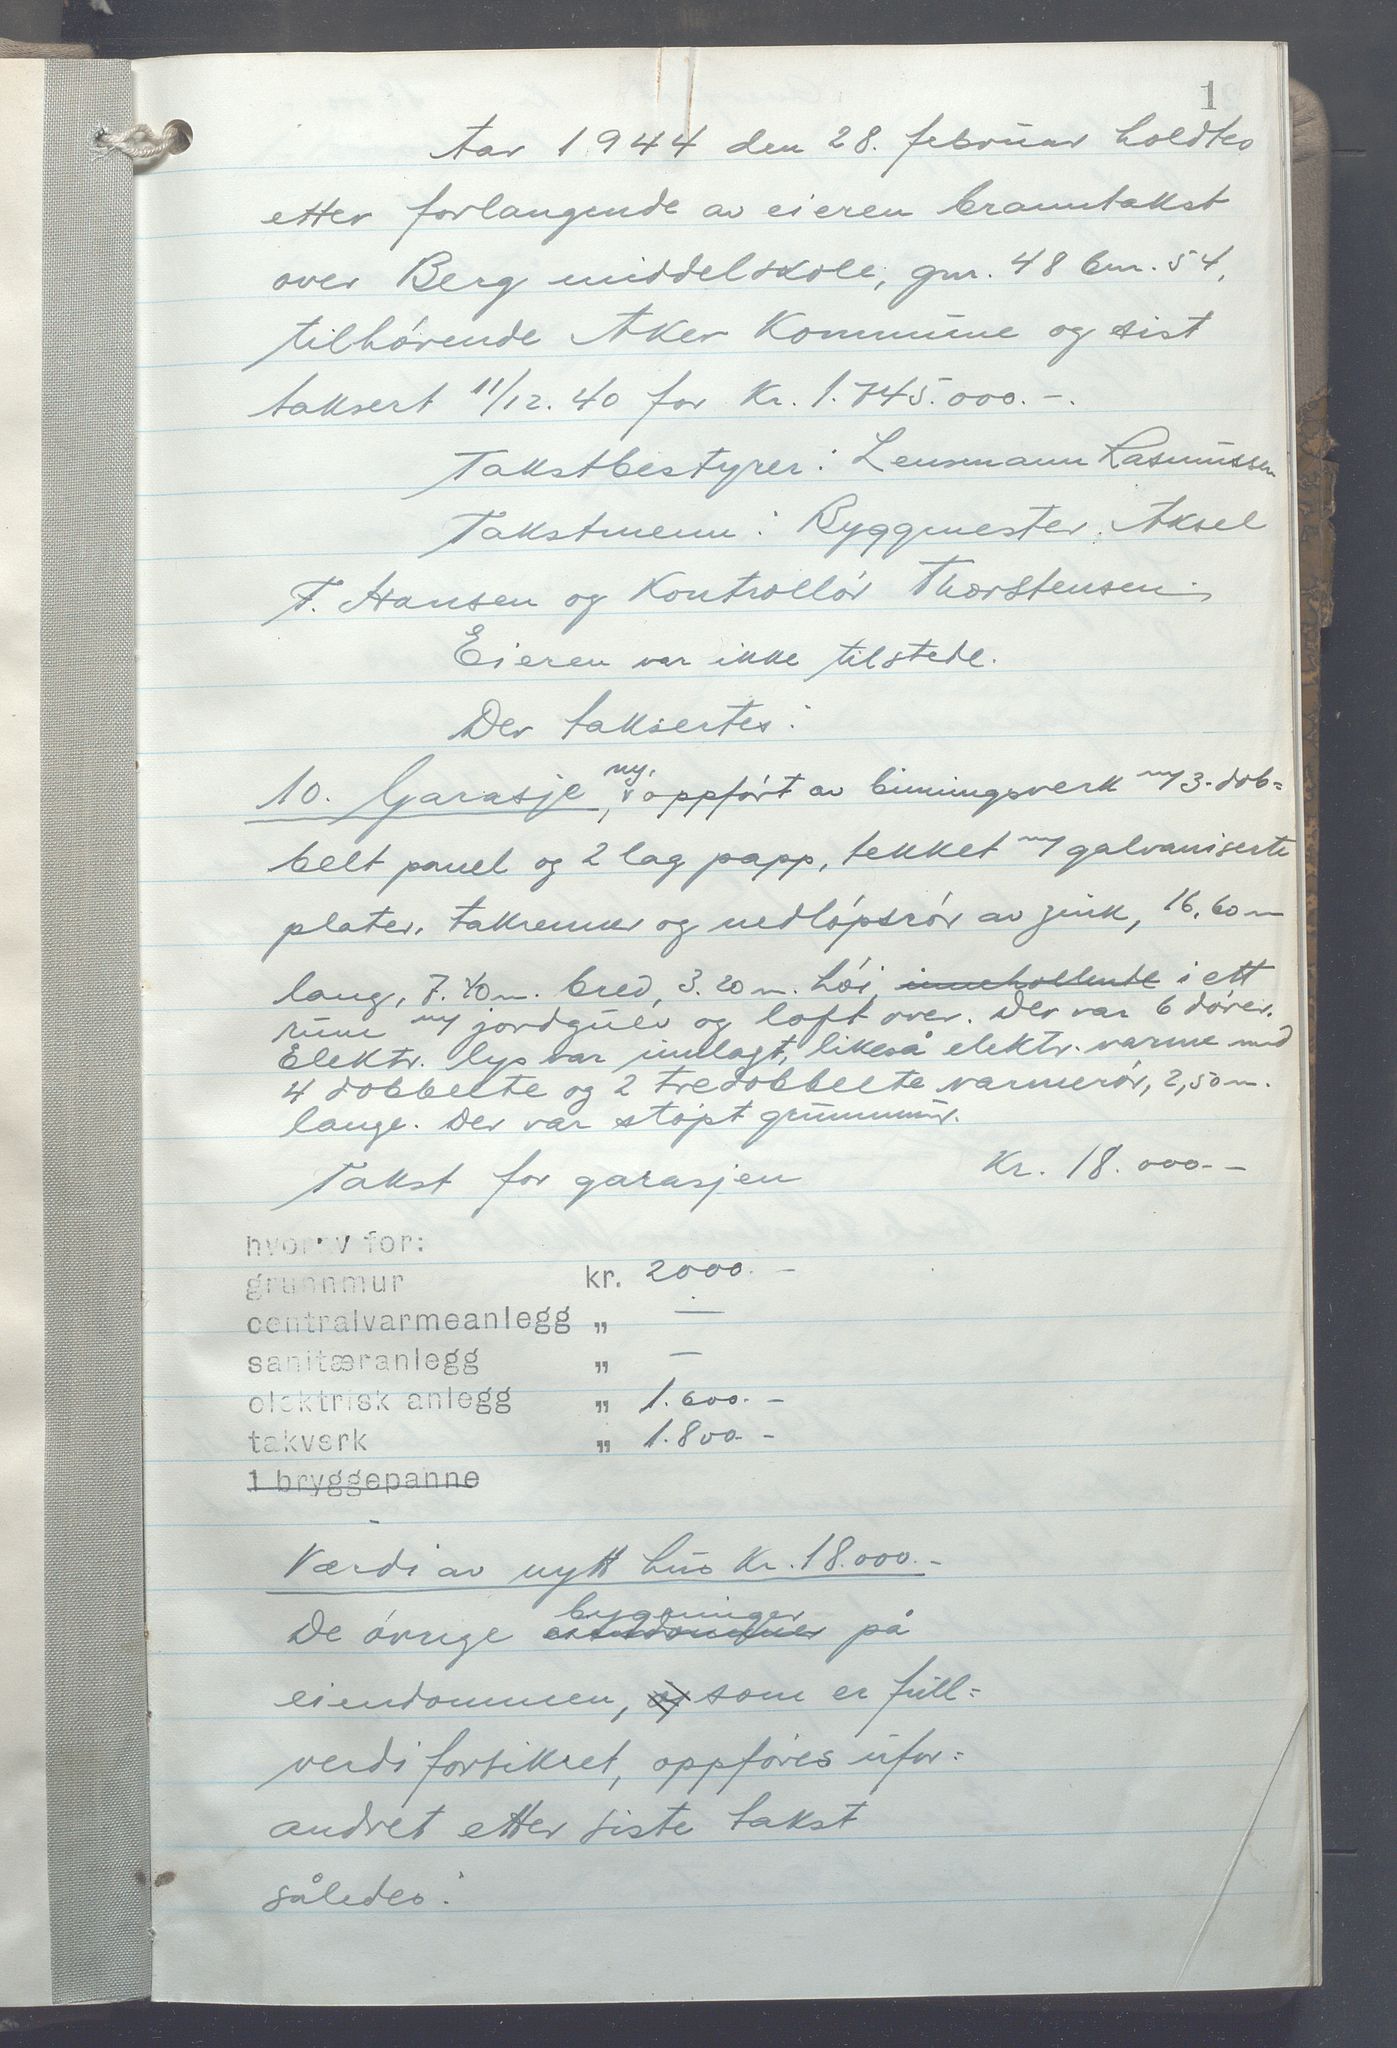 1
Aar 1944 den 28. februar holdtes
etter forlangende av eieren branntakst
over Berg middelskole, gnr. 48 bnr. 54,
tilhørende Aker Kommune og sist
taksert 11/12. 40 for Kr. 1.745.000.-.
Takstbestyrer: Lensmann Rasmussen
Takstmenn: Byggmester Aksel
F. Hansen og Kontrollør Thorstensen.
Eieren var ikke tilstede.
Der taksertes:
ny,
10. Garasje, oppført av binningsverk m/ 3-dob=
belt panel og 2 lag papp, tekket m/ galvaniserte
plater, takrenner og nedløpsrør av zink, 16,60 m
lang, 7.40 m. bred, 3.20 m. høi, inneholdende i ett
rum m/ jordgulv og loft over. Der var 6 dører.
Elektr. lys var innlagt, likeså elektr. varme med
4 dobbelte og 2 tredobbelte varmerør, 2,50 m.
lange. Der var støpt grunnmur.
Takst for garasjen Kr. 18.000.-
hvorav for:
grunnmur kr. 2000.-
centralvarmeanlegg „ —
sanitæranlegg „ —
elektrisk anlegg „ 1.600.-
takverk „ 1.800.-
1 bryggepanne
Verdi av nytt hus Kr. 18.000.-
bygninger
De øvrige eiendommer på
eiendommen, som er full=
verdiforsikret, oppføres ufor=
andret etter siste takst
således: